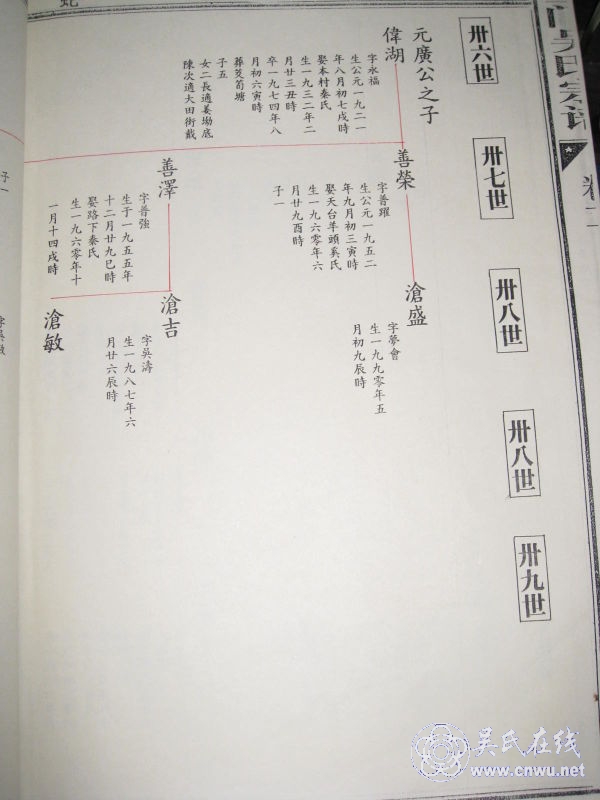 卅六世
卅七世
卅八世
卅八世
卅九世
元廣公之子
偉湖
字永福
生公元一九二一
年八月初七戌時
娶本村秦氏
生一九三二年二
月廿三丑時
卒一九七四年八
月初六寅時
葬芟筍塘
子五
女二長適姜坳底
陳次適大田街戴
善榮
字普躍
生公元一九五二
年九月初三寅時
娶天台羊頭奚氏
生一九六零年六
月廿九酉時
子一
滄盛
字夢會
生一九九零年五
月初九辰時
善澤
字普強
生于一九五五年
十二月廿九巳時
娶路下秦氏
生一九六零年十
一月十四戌時
滄吉
字吳濤
生一九八七年六
月廿六辰時
滄敏
子一
吴氏在线
www.cnwu.net